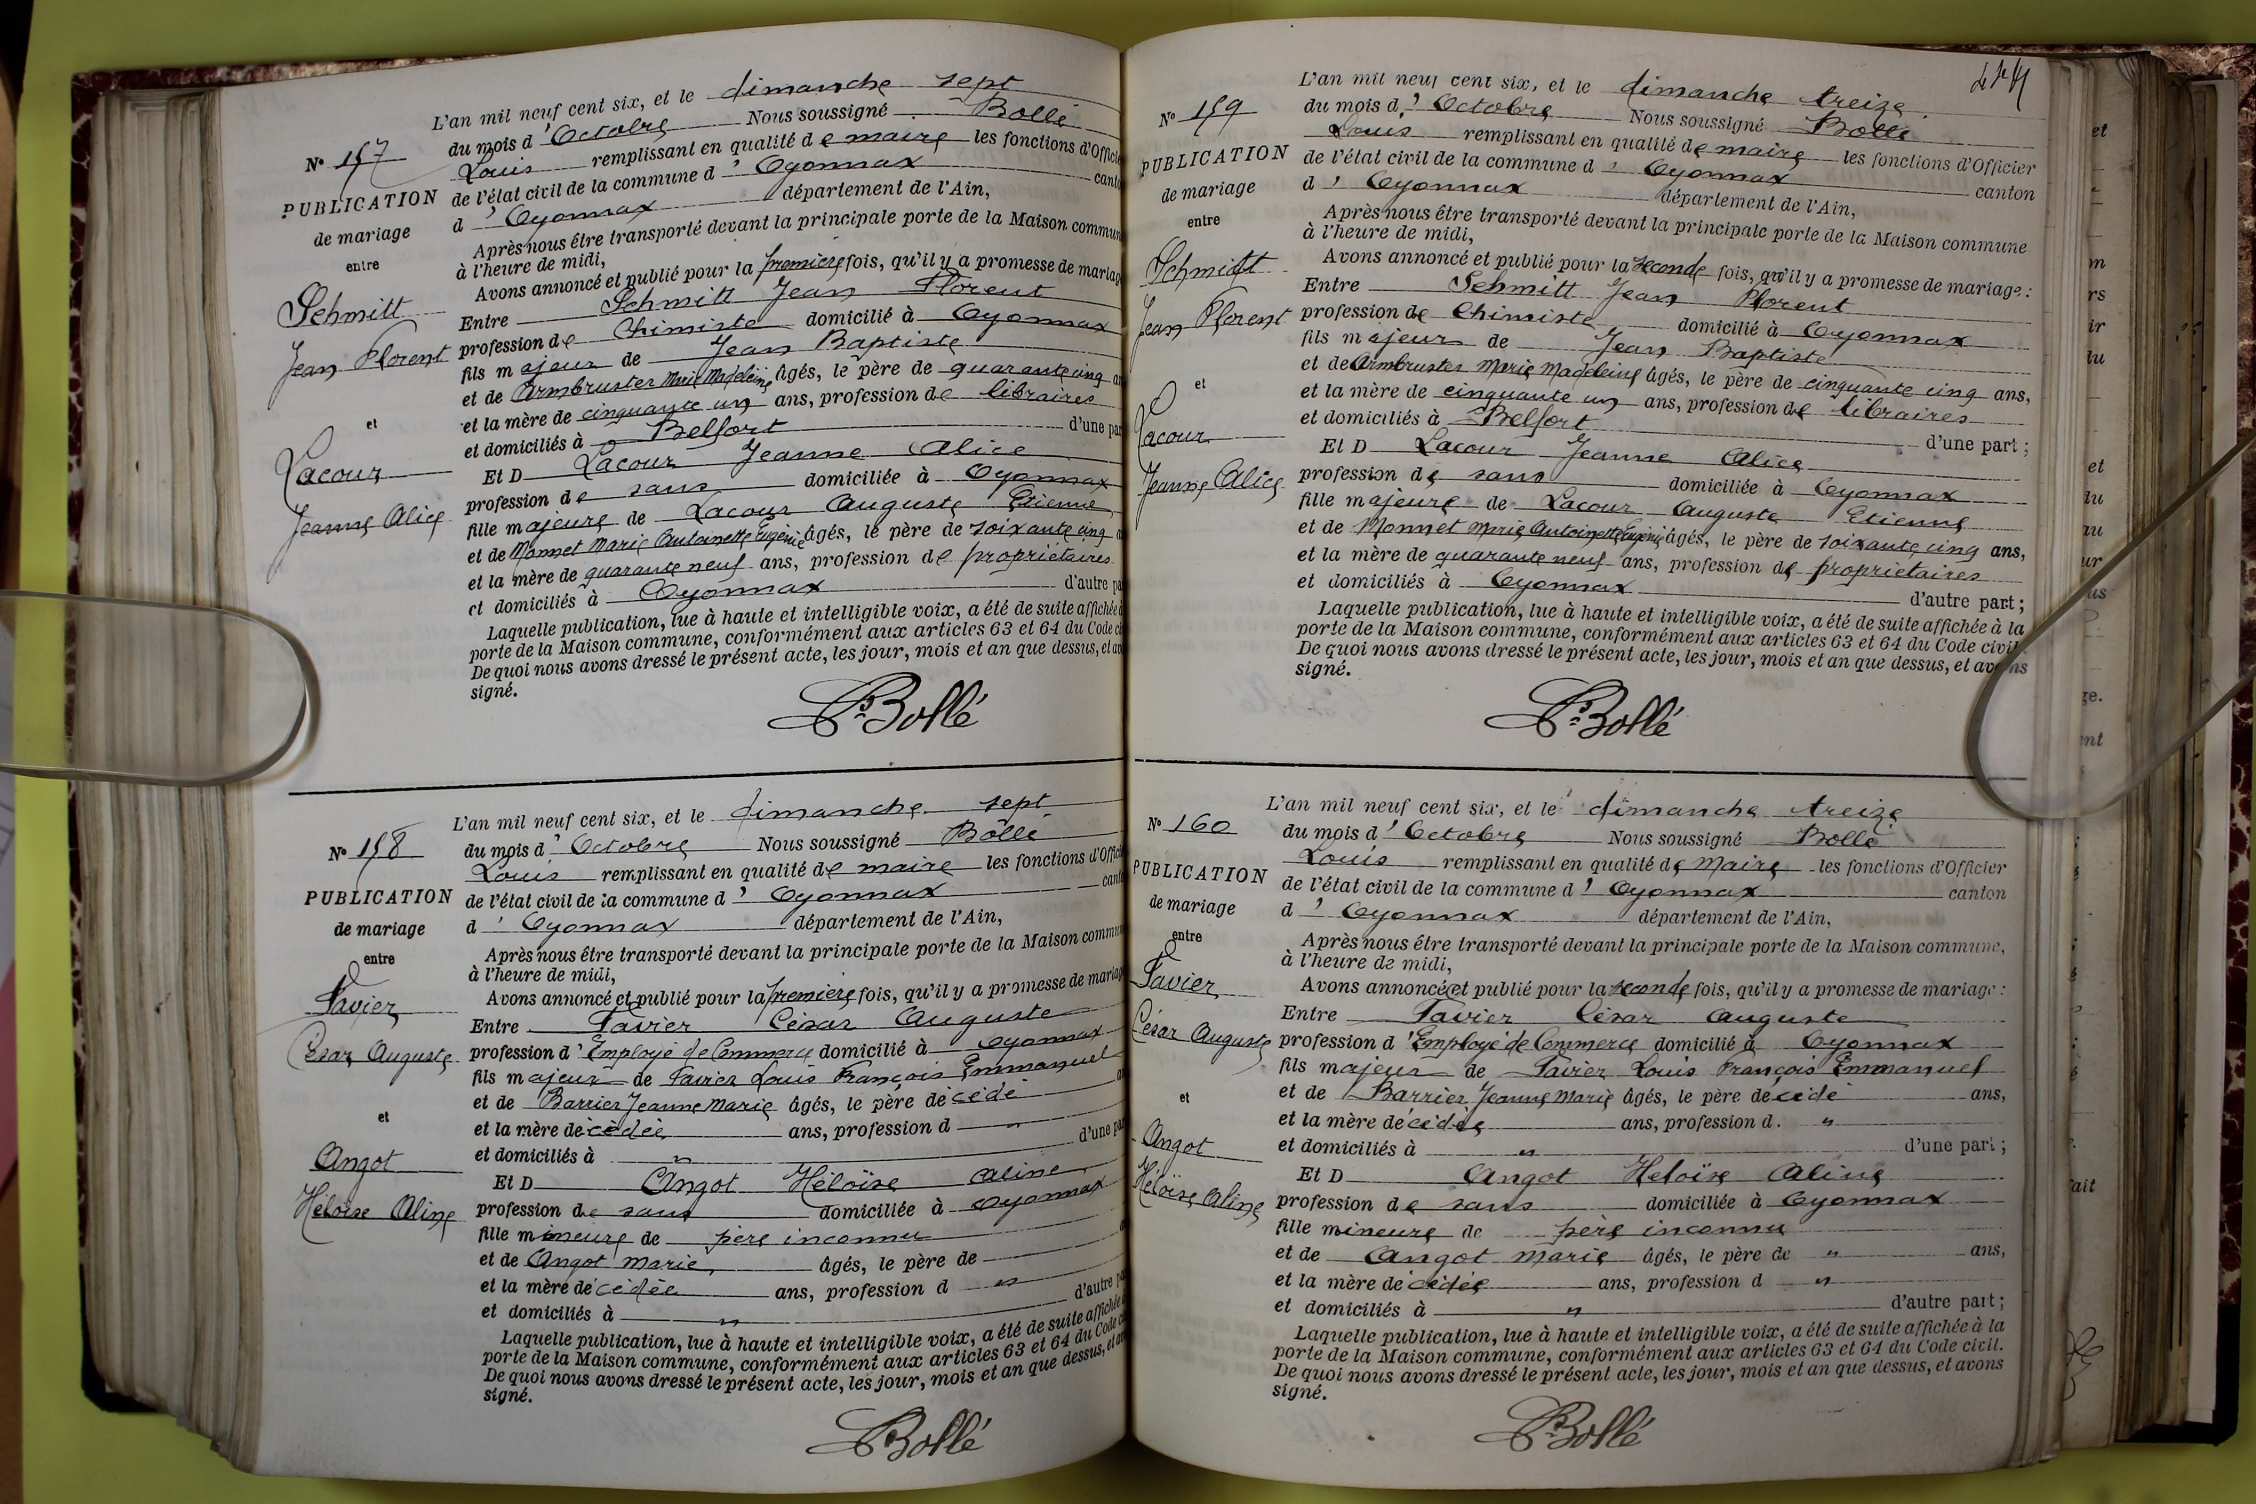 L'an mil neuf cent six, et le dimanche sept
N° 157
du mois d'Octobre Nous soussigné Bollé
Louis remplissant en qualité de maire les fonctions d'Officie
PUBLICATION
de l'état civil de la commune d'Oyonnax cant
de mariage
d'Oyonnax département de l'Ain,
entre
Après nous être transporté devant la principale porte de la Maison commun
à l'heure de midi,
Avons annoncé et publié pour la première fois, qu'il y a promesse de mariag
Schmitt
Entre Schmitt Jean Florent
Jean Florent
profession de Chimiste domicilié à Oyonnax
fils majeur de Jean Baptiste
et de Armbruster Marie Madeleine âgés, le père de quarante cinq an
et
et la mère de cinquante un ans, profession de libraires
et domiciliés à Belfort d'une par
Lacour
Et D Lacour Jeanne Alice
Jeanne Alice
profession de sans domiciliée à Oyonnax
fille majeure de Lacour Auguste Etienne
et de Monnet Marie Antoinette Eugénie âgés, le père de soixante cinq a
et la mère de quarante neuf ans, profession de propriétaires
et domiciliés à Oyonnax d'autre pa
Laquelle publication, lue à haute et intelligible voix, a été de suite affichée à
porte de la Maison commune, conformément aux articles 63 et 64 du Code ci
De quoi nous avons dressé le présent acte, les jour, mois et an que dessus, et av
signé.
Ls Bollé
L'an mil neuf cent six, et le dimanche sept
N° 158
du mois d'Octobre Nous soussigné Bollé
Louis remplissant en qualité de maire les fonctions d'Offici
PUBLICATION
de l'état civil de la commune d'Oyonnax canto
de mariage
d'Oyonnax département de l'Ain,
entre
Après nous être transporté devant la principale porte de la Maison commun
à l'heure de midi,
Favier
Avons annoncé et publié pour la première fois, qu'il y a promesse de mariag
Entre Favier César Auguste
César Auguste
profession d'Employé de Commerce domicilié à Oyonnax
fils majeur de Favier Louis François Emmanuel
et de Barrier Jeanne Marie âgés, le père décédé an
et
et la mère décédée ans, profession d "
et domiciliés à " d'une par
Angot
Et D Angot Héloïse Aline
Héloïse Aline
profession de sans domiciliée à Oyonnax
fille mineure de père inconnu
et de Angot Marie âgés, le père de
et la mère décédée ans, profession d "
et domiciliés à " d'autre pa
Laquelle publication, lue à haute et intelligible voix, a été de suite affichée à
porte de la Maison commune, conformément aux articles 63 et 64 du Code ci
De quoi nous avons dressé le présent acte, les jour, mois et an que dessus, et av
signé.
Ls Bollé
L'an mil neuf cent six, et le dimanche treize
N° 159
du mois d'Octobre Nous soussigné Bollé
Louis remplissant en qualité de maire les fonctions d'Officier
PUBLICATION
de l'état civil de la commune d'Oyonnax canton
de mariage
d'Oyonnax département de l'Ain,
entre
Après nous être transporté devant la principale porte de la Maison commune
à l'heure de midi,
Schmitt
Avons annoncé et publié pour la seconde fois, qu'il y a promesse de mariage :
Entre Schmitt Jean Florent
Jean Florent
profession de Chimiste domicilié à Oyonnax
fils majeur de Jean Baptiste
et de Armbruster Marie Madeleine âgés, le père de cinquante cinq ans,
et
et la mère de cinquante un ans, profession de libraires
et domiciliés à Belfort d'une part ;
Lacour
Et D Lacour Jeanne Alice
Jeanne Alice
profession de sans domiciliée à Oyonnax
fille majeure de Lacour Auguste Etienne
et de Monnet Marie Antoinette Eugénie âgés, le père de soixante cinq ans,
et la mère de quarante neuf ans, profession de propriétaires
et domiciliés à Oyonnax d'autre part ;
Laquelle publication, lue à haute et intelligible voix, a été de suite affichée à la
porte de la Maison commune, conformément aux articles 63 et 64 du Code civil.
De quoi nous avons dressé le présent acte, les jour, mois et an que dessus, et avons
signé.
Ls Bollé
L'an mil neuf cent six, et le dimanche treize
N° 160
du mois d'Octobre Nous soussigné Bollé
Louis remplissant en qualité de Maire les fonctions d'Officier
PUBLICATION
de l'état civil de la commune d'Oyonnax canton
de mariage
d'Oyonnax département de l'Ain,
entre
Après nous être transporté devant la principale porte de la Maison commune,
à l'heure de midi,
Favier
Avons annoncé et publié pour la seconde fois, qu'il y a promesse de mariage :
Entre Favier César Auguste
César Auguste
profession d'Employé de Commerce domicilié à Oyonnax
fils majeur de Favier Louis François Emmanuel
et de Barrier Jeanne Marie âgés, le père décédé ans,
et
et la mère décédée ans, profession d. "
et domiciliés à " d'une part ;
Angot
Et D Angot Heloïse Aline
Héloïse Aline
profession de sans domiciliée à Oyonnax
fille mineure de père inconnu
et de Angot Marie âgés, le père de " ans,
et la mère décédée ans, profession d "
et domiciliés à " d'autre part ;
Laquelle publication, lue à haute et intelligible voix, a été de suite affichée à la
porte de la Maison commune, conformément aux articles 63 et 64 du Code civil.
De quoi nous avons dressé le présent acte, les jour, mois et an que dessus, et avons
signé.
Ls Bollé